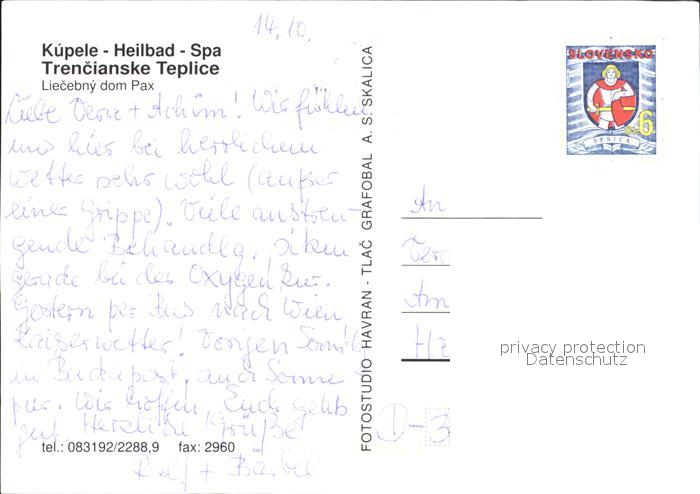 14.10.
Kúpele - Heilbad - Spa
Trenčianske Teplice
Liečebný dom Pax
Liebe Vera + Achim! Wir fühlen
uns hier bei herrlichem
Wetter sehr wohl (außer
einer Grippe). Viele anstren-
gende Behandlg. sitzen
gerade bei der Oxygenkur.
Gestern per Bus nach Wien
Kaiserwetter! Vorigen Sonntg
in Budapest, auch Sonne
pur. Wir hoffen, Euch gehts
gut. Herzliche Grüße
Rolf + Bärbel
tel.: 083192/2288,9 fax: 2960
FOTOSTUDIO HAVRAN - TLAČ GRAFOBAL A. S. SKALICA
SLOVENSKO
6
SENICA
An
Vera
Am
Ha
D-3
privacy protection
Datenschutz